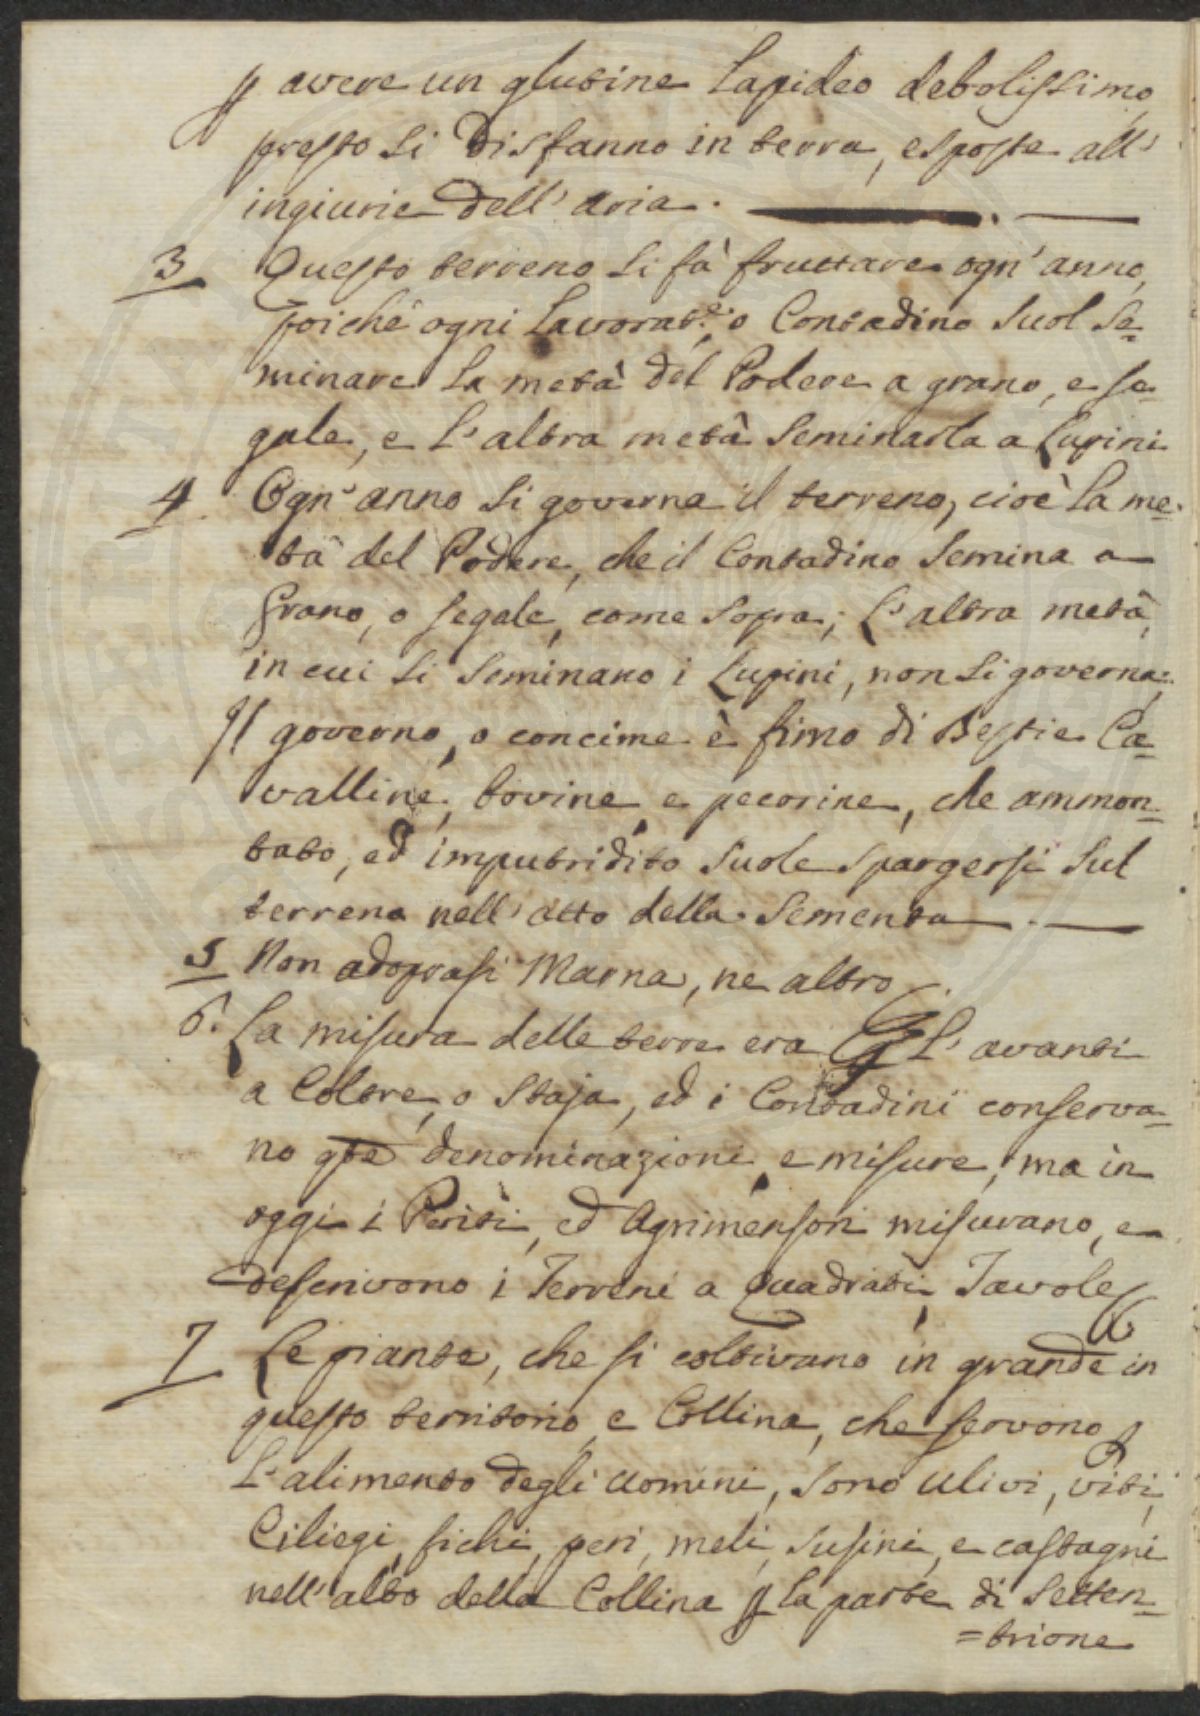 p avere un glutine Lapideo debolissimo,
presto si disfanno in terra, esposte all'
ingiurie dell'aria. ——— . ———
3 Questo terreno si fà fruttare ogn'anno,
poichè ogni Lavorat.e, o Contadino suol se=
minare la metà del Podere a grano, e se=
gale, e l'altra metà seminarla a Lupini
4 Ogn'anno si governa il terreno, cioè la me=
tà del Podere, che il Contadino semina a
Grano, o segale, come sopra; L'altra metà,
in cui si seminano i Lupini, non si governa;
Il governo, o concime è fimo di Bestie Ca=
valline, bovine, e pecorine, che ammon=
tato, ed imputridito suole spargersi sul
terreno nell'atto della sementa . ———
5 Non adoprasi Marna, ne altro.
6. La misura delle terre era p L'avanti
a Coltre, o Staja, ed i Contadini conserva=
no qte denominazioni, e misure, ma in
oggi i Periti, ed Agrimensori misurano, e
descrivono i Terreni a Quadrati, Tavole
7 Le piante, che si coltivano in grande in
questo territorio, e Collina, che servono p
L'alimento degli uomini, sono ulivi, viti,
Ciliegi, fichi, peri, meli, susini, e castagni
nell'alto della Collina p la parte di setten=
=trione